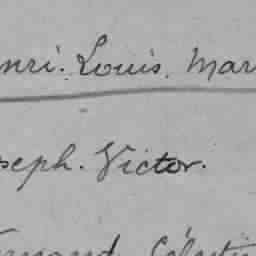 nri. Louis. Mar
seph. Victor.